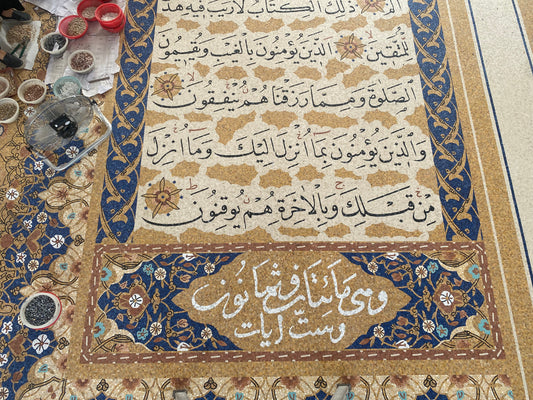 ذلك الكتاب لاريب فيه هد
للمتقين الذين يؤمنون بالغيب ويقيمون
الصلوة ومما رزقناهم ينفقون
والذين يؤمنون بما انزل اليك وما انزل
من قبلك وبالاخرة هم يوقنون
وهى مائتان وثمانون
وست آيات